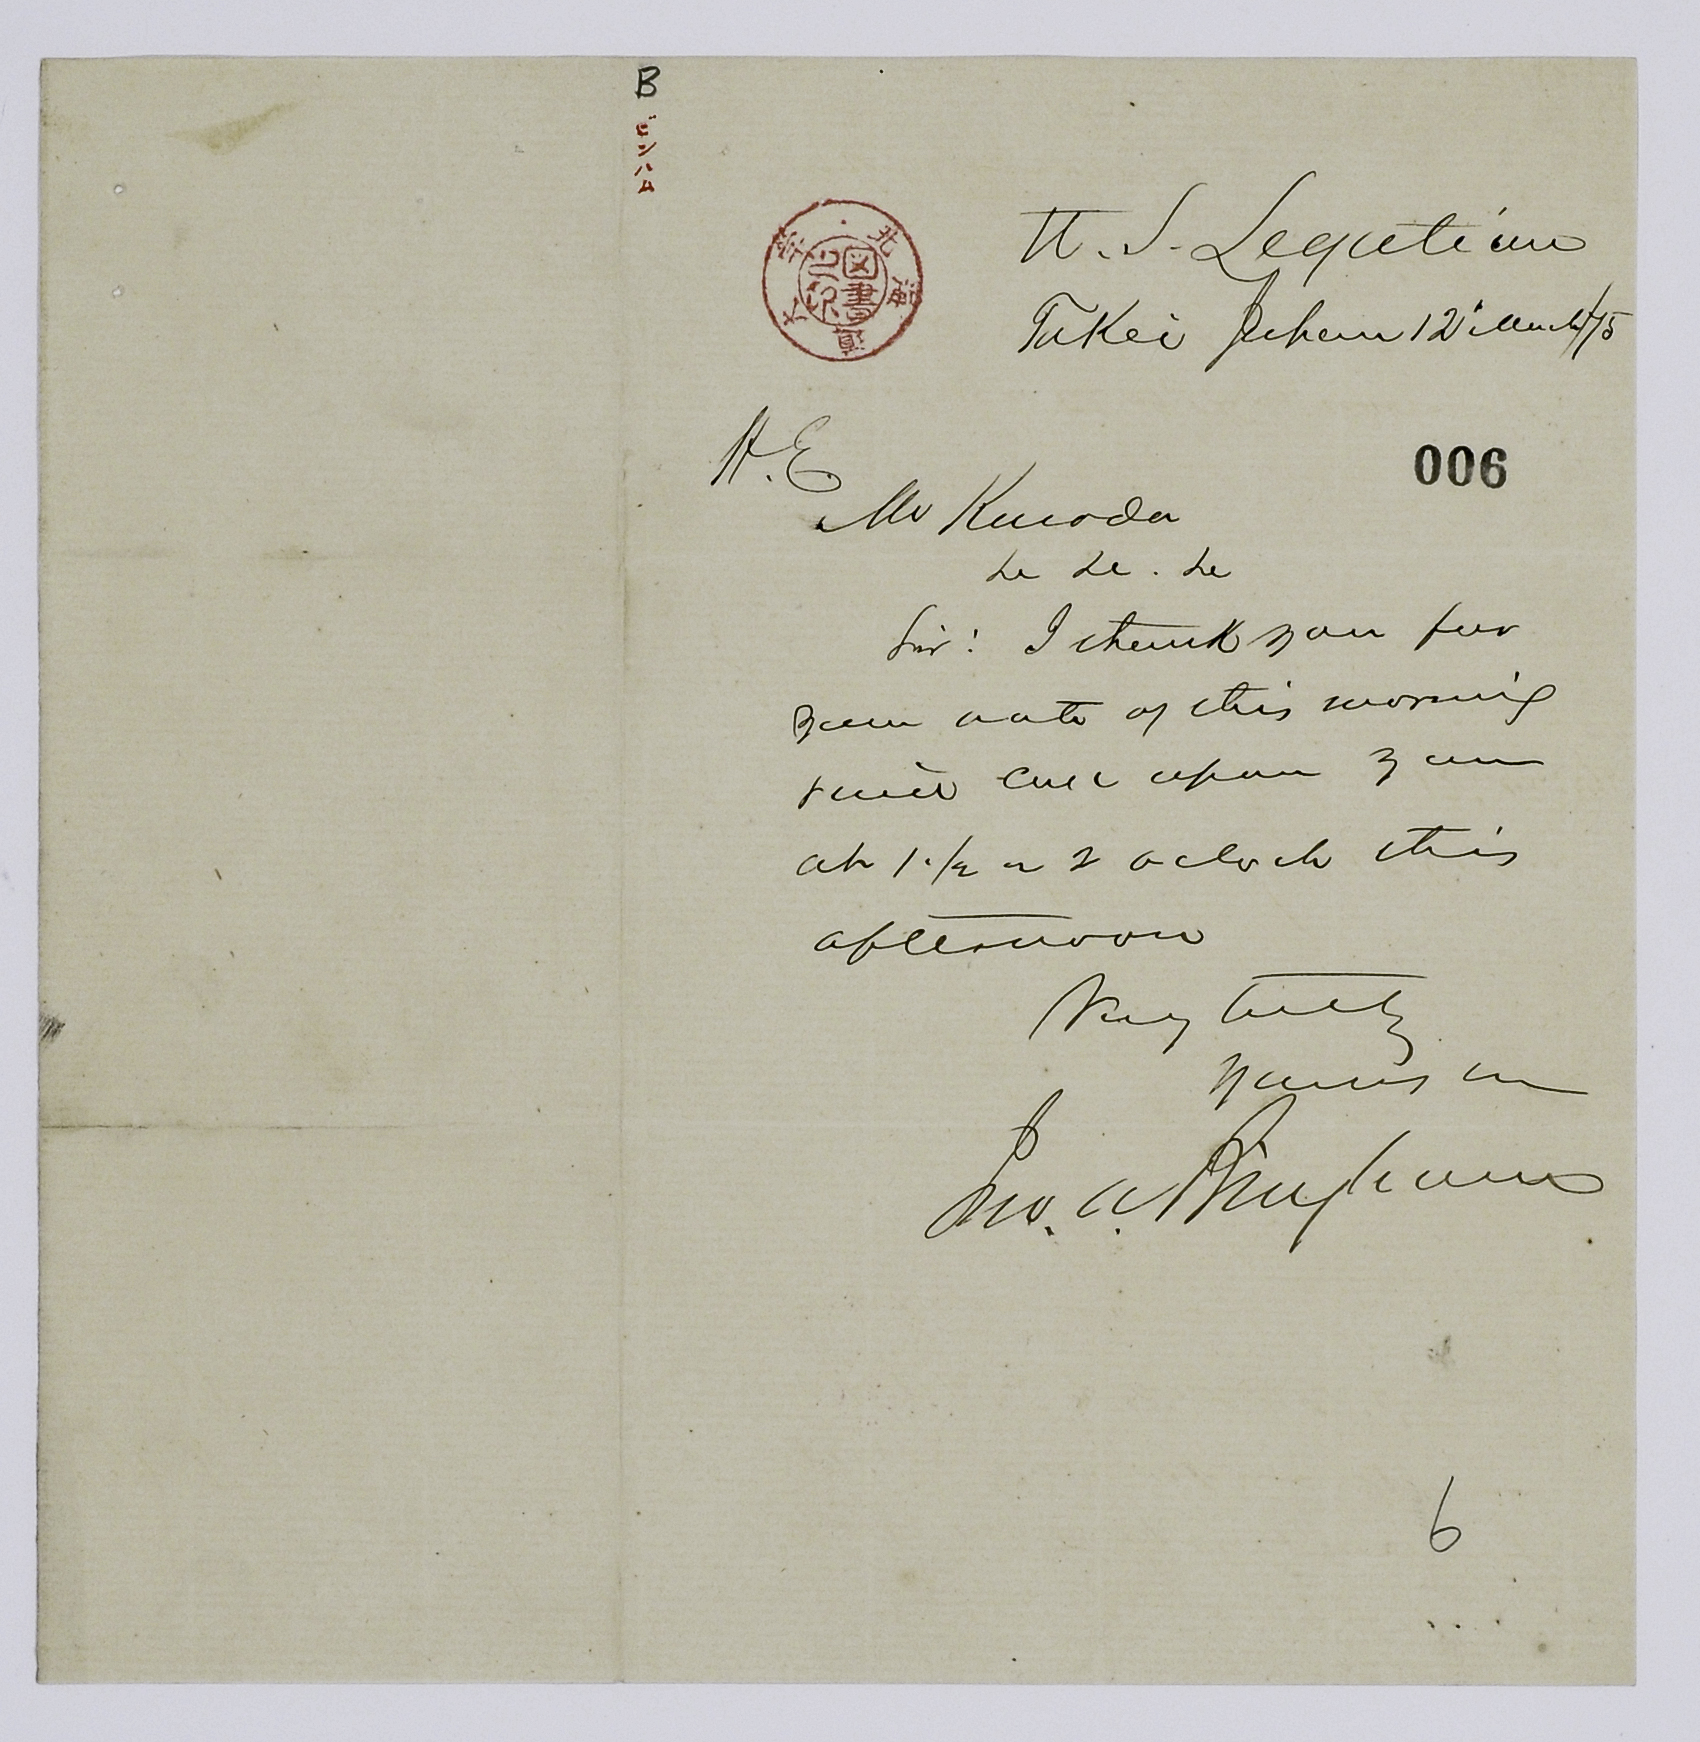 B
ビンハム
北海道大学
図書之印
U. S. Legation
Tokei Japan 12 March/75
006
H. E.
Mr Kuroda
&c &c. &c
Sir! I thank you for
your note of this morning
& will call upon you
at 1 1/2 or 2 oclock this
afternoon
Very truly
yours
Jno. A. Bingham
6